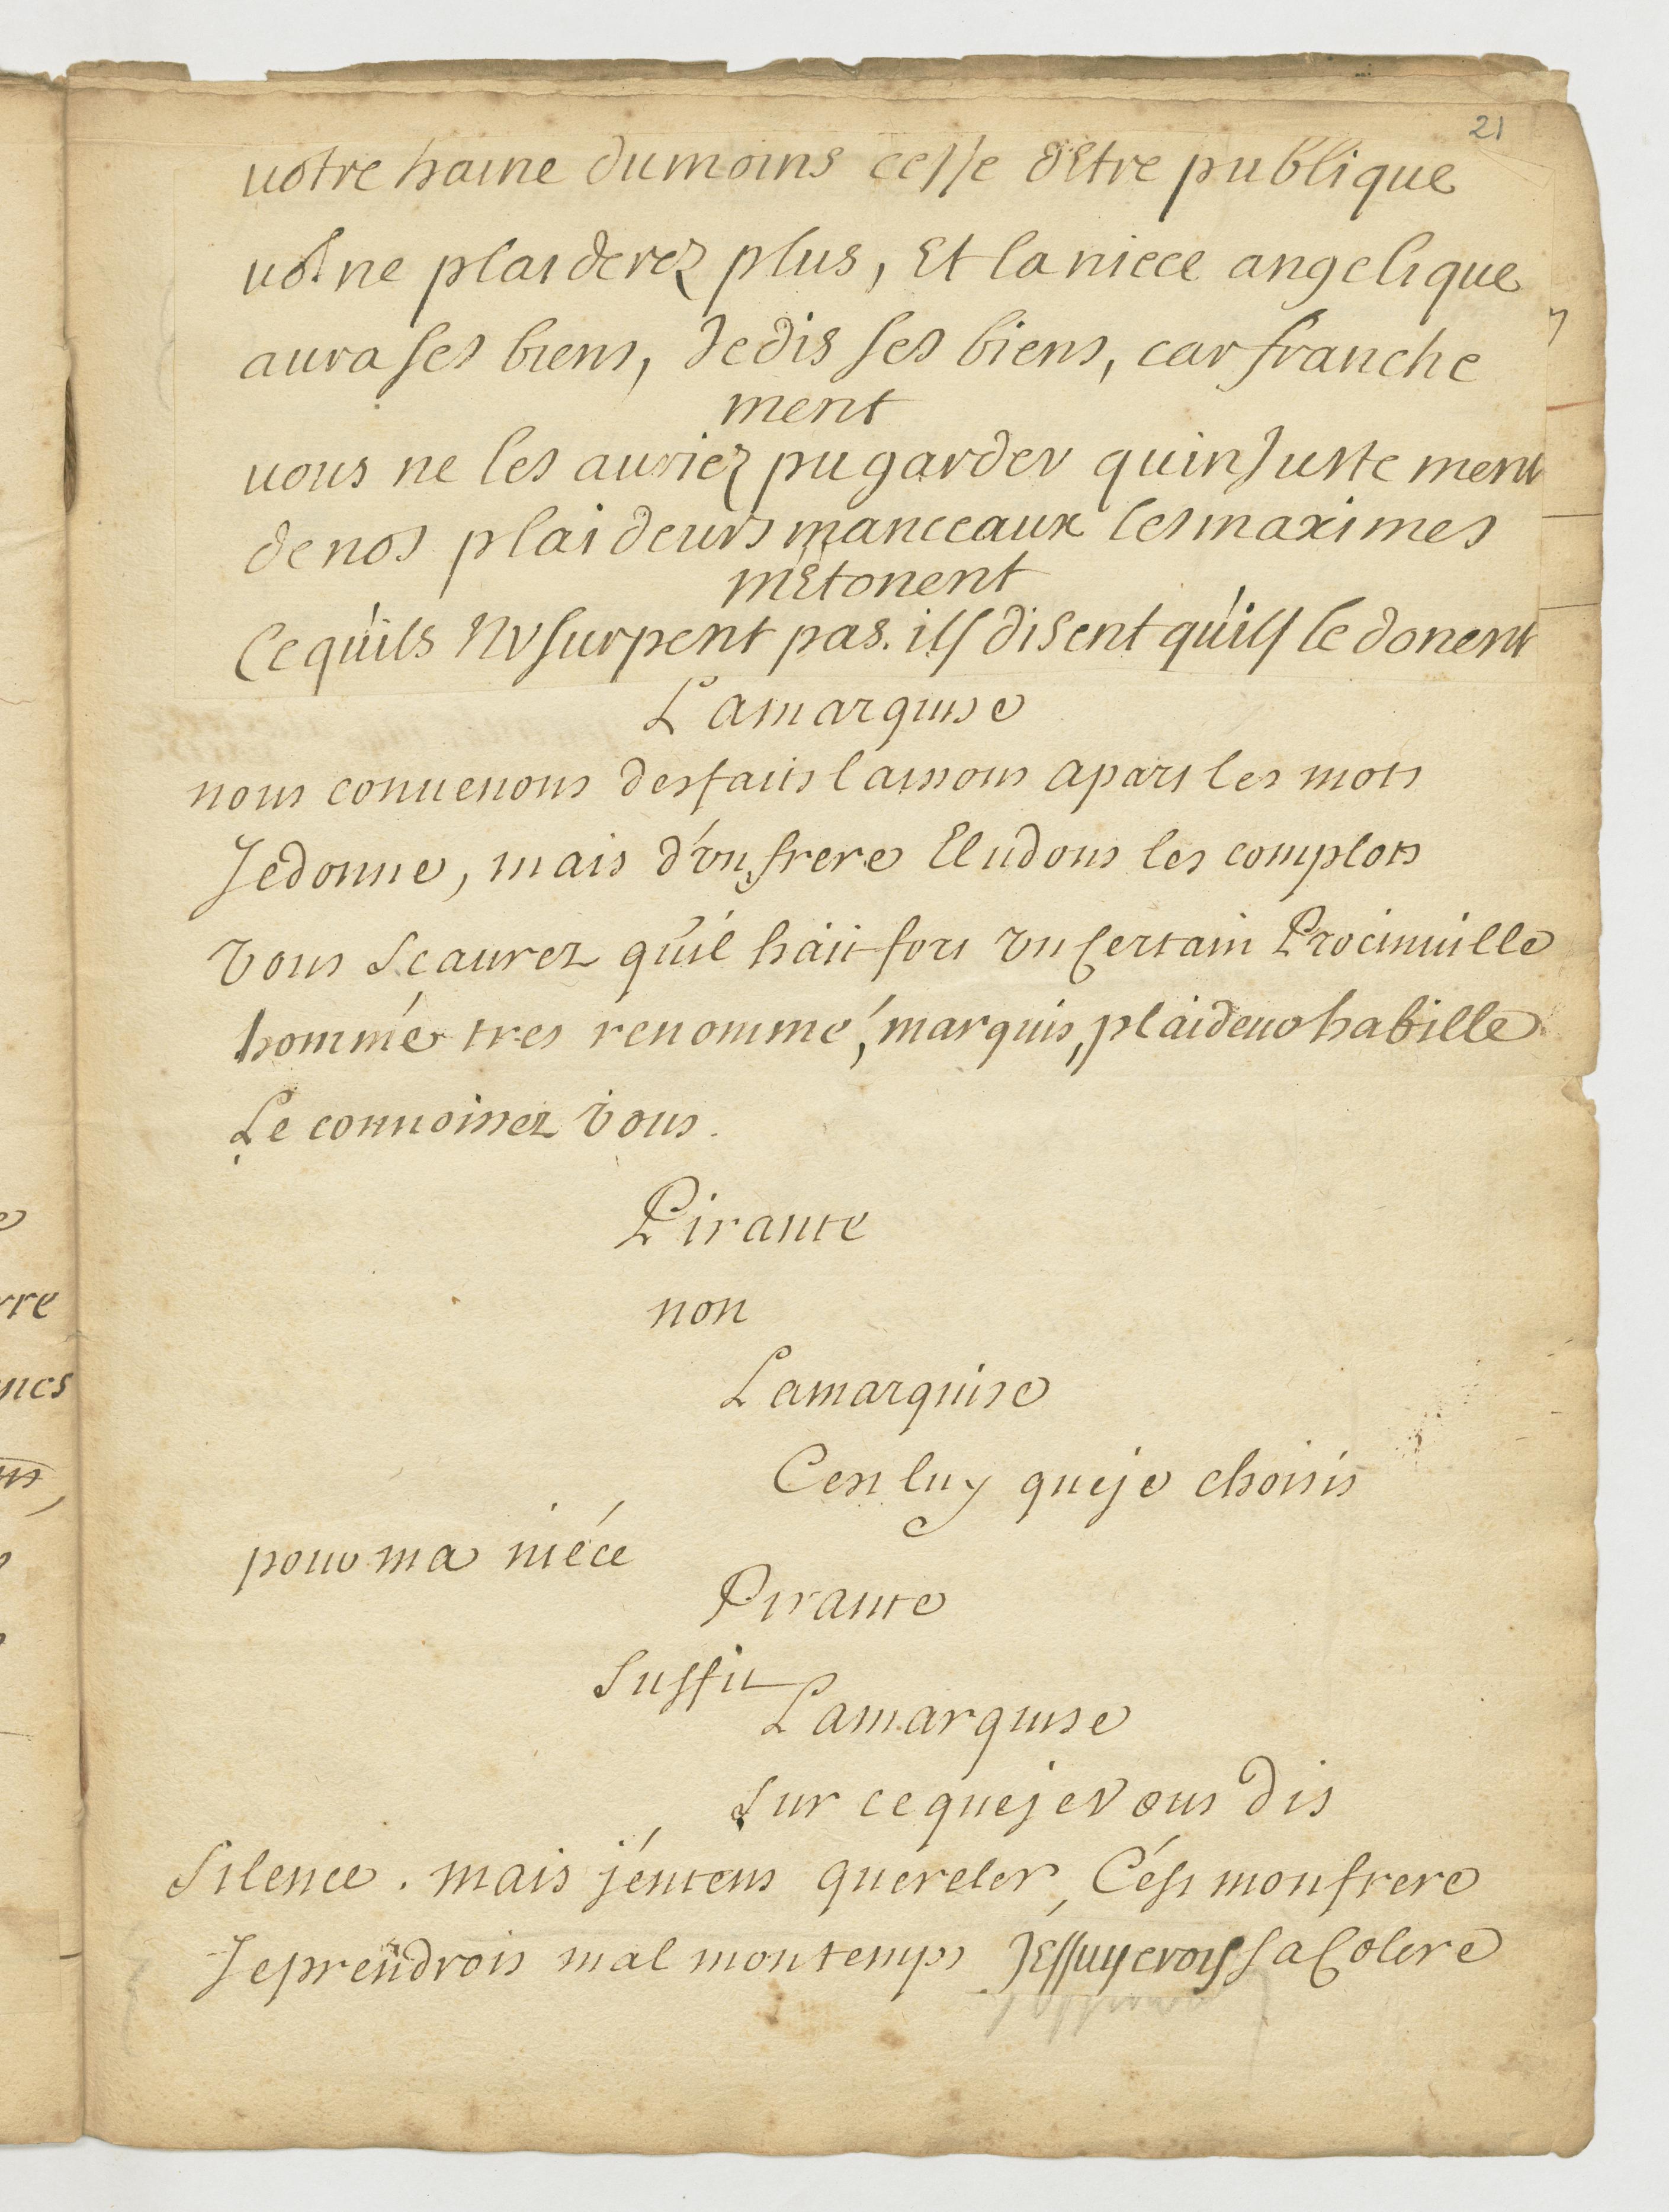 21
votre haine du moins cesse d'Etre publique
vos ne plaiderez plus, Et la niece angelique
aura ses biens, Je dis ses biens, car franche
ment
vous ne les auriez pu garder quinJuste ment
de nos plaideurs manceaux les maximes
m'Etonent
Ce qu'ils N'vsurpent pas. ils disent qu'ils le donent
La marquise
nous convenons des faits laissons apart les mots
Je donne, mais d'vn frere Eludons les complots
vous scaurez qu'il hait fort vn certain Procinville
homme tres renommé, marquis, plaideur habille
Le connoissez vous.
Pirante
non
La marquise
C'est luy que je choisis
pour ma niéce
Pirante
Suffit
La marquise
Sur ce que je vous dis
Silence. mais j'entens quereler, C'ést mon frere
Je prendrois mal mon temps JEssuyerois sa Colere